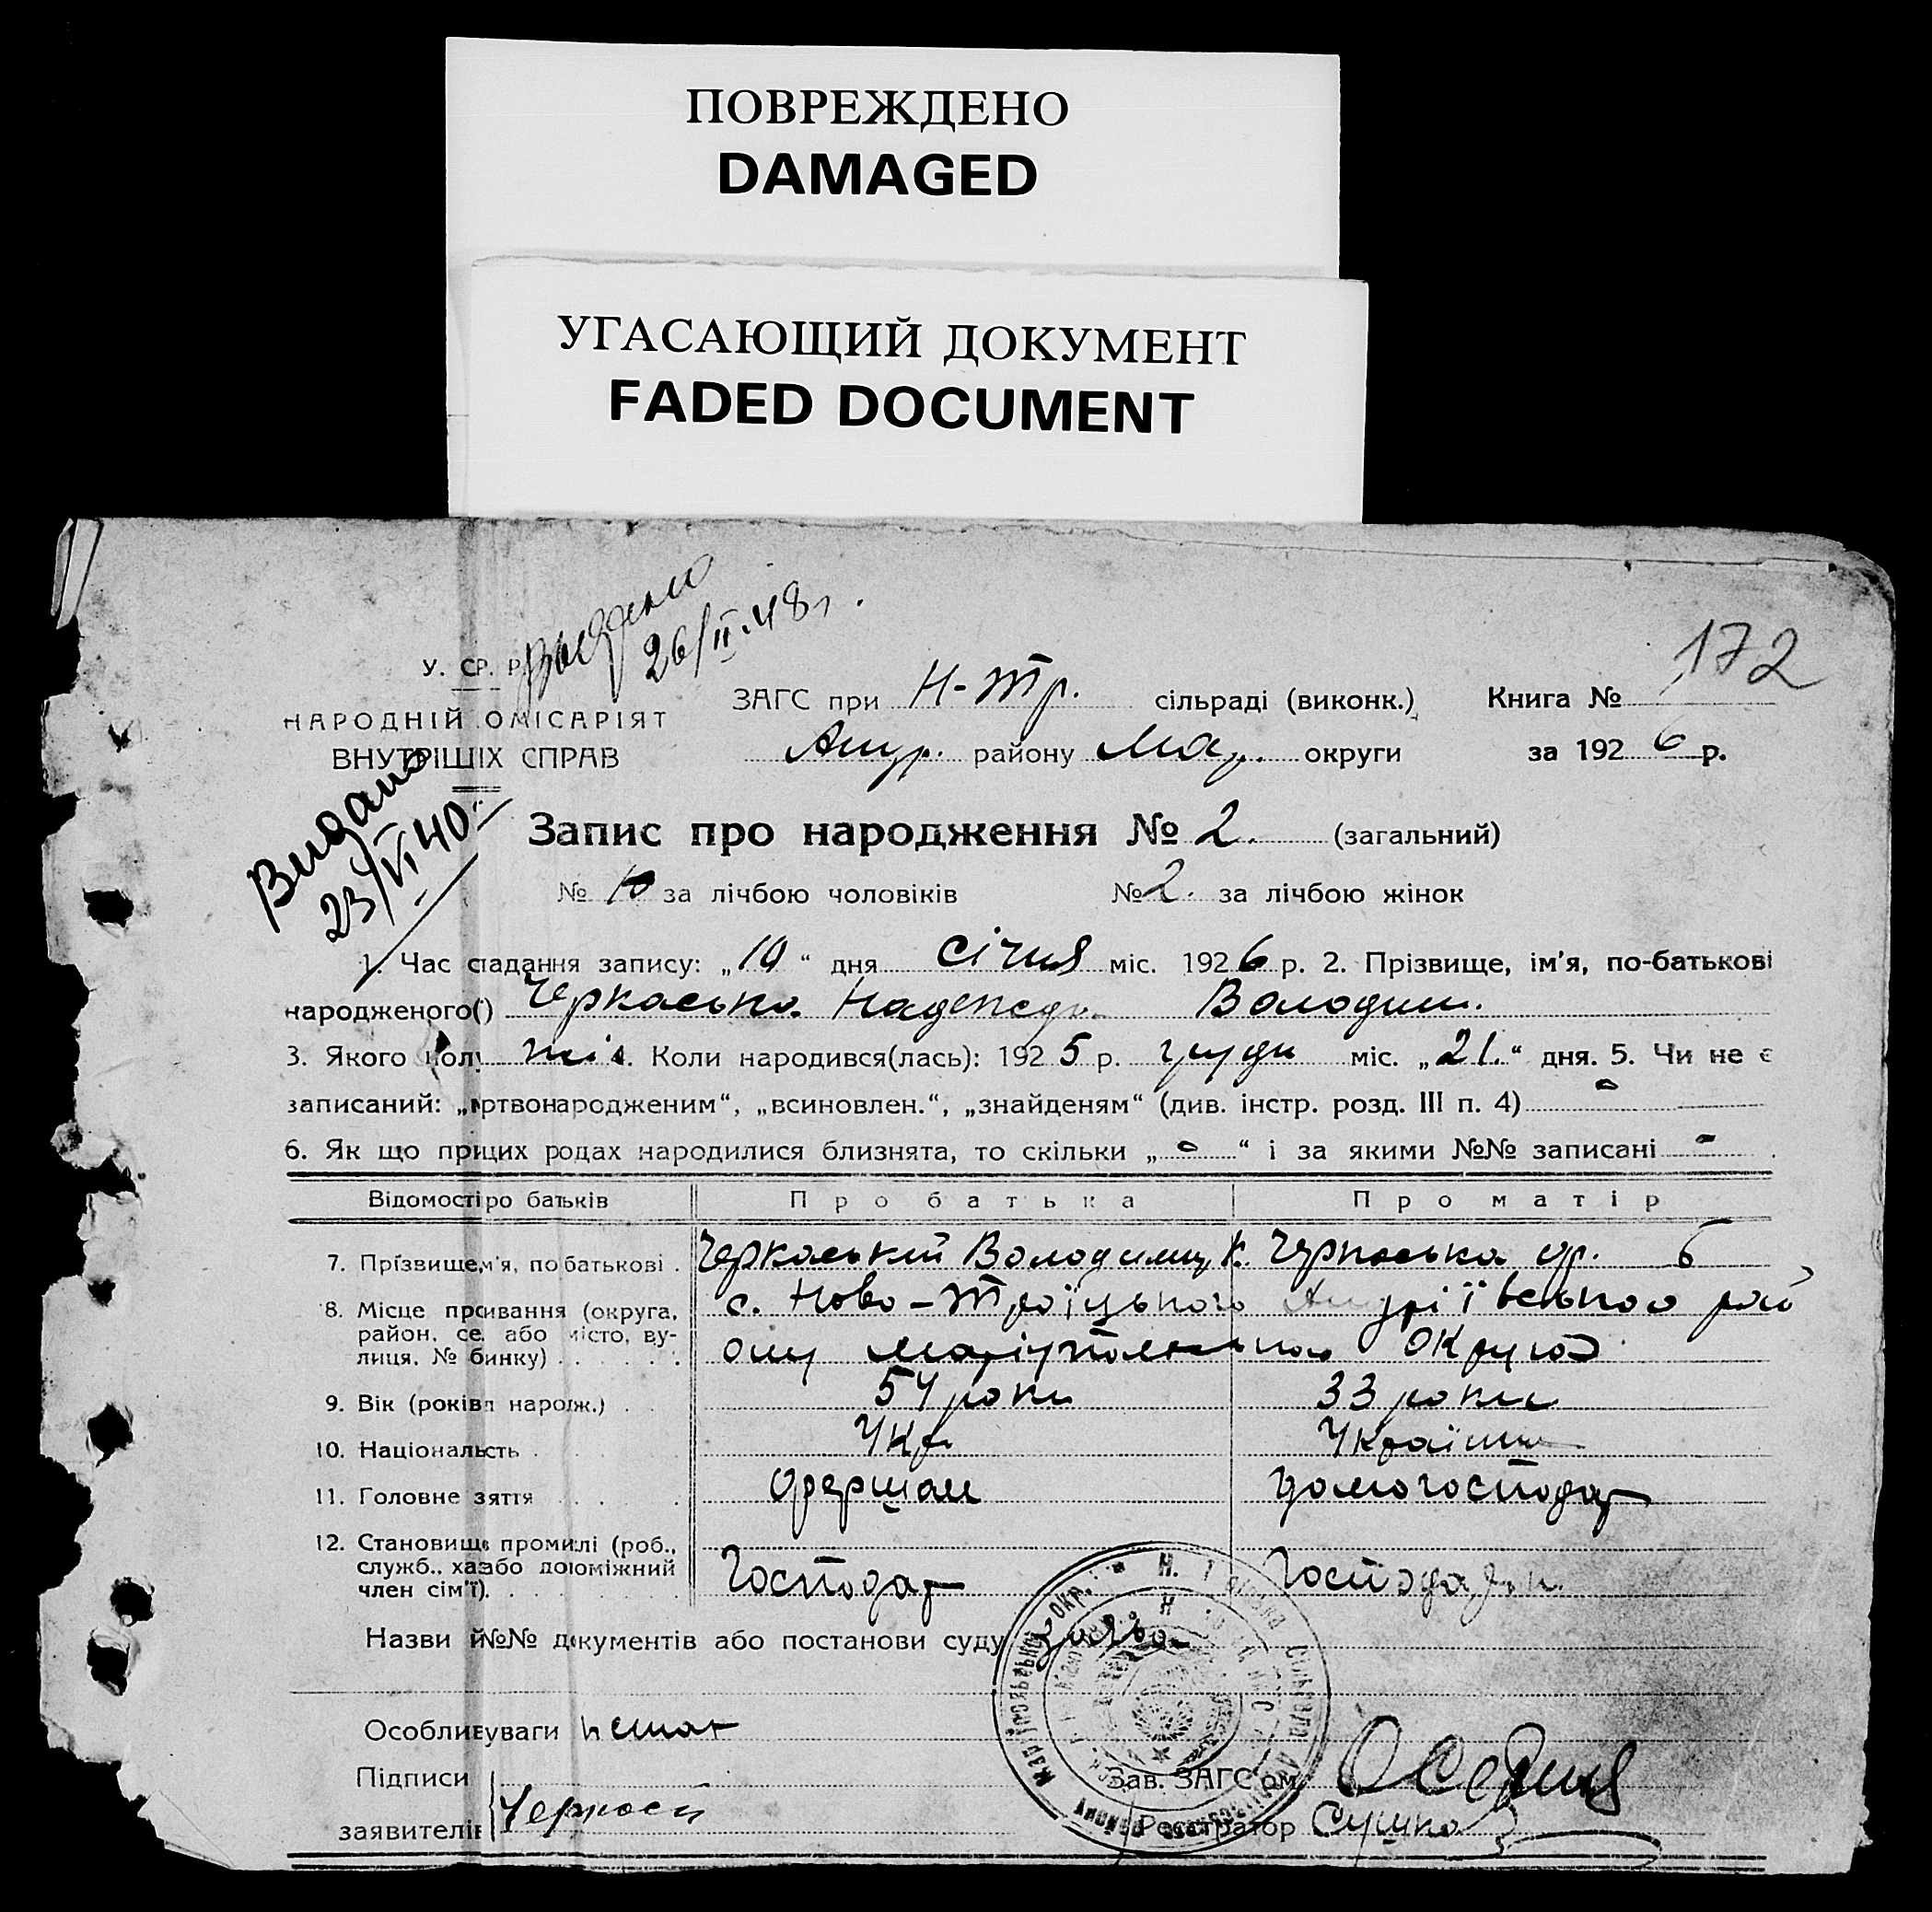 ПОВРЕЖДЕНО
DAMAGED
УГАСАЮЩИЙ ДОКУМЕНТ
FADED DOCUMENT
Выдано
26/II.48г.
172
У. СР. Р.
НАРОДНІЙ ОМІСАРІЯТ
ВНУТРІШІХ СПРАВ
ЗАГС при Н-Тр. сільраді (виконк.) Книга №
району Мар. округи за 1926 р.
Видано
23/VI 40.
Запис про народження № 2. (загальний)
№ за лічбою чоловіків № 2. за лічбою жінок
1. Час складання запису: „10“ дня Січня міс. 1926 р. 2. Прізвище, ім'я, по-батькові
народженого() Черкаська Надежда Володим.
3. Якого жін. Коли народився(лась): 1925 р. грудн міс. „21.“ дня. 5. Чи не є
записаний: „ртвонародженим“, „всиновлен.“, „знайденям“ (див. інстр. розд. III п. 4) -
6. Як що при цих родах народилися близнята, то скільки „-“ і за якими №№ записані -
Відомості про батьків Про батька Про матір
7. Прізвище, м'я, по батькові . Черкаський Володимир К. Черкаська
8. Місце проживання (округа, с. Ново-Троїцького рай
район, се або місто, ву-
лиця, № бинку) ону Маріупольської Округи
9. Вік (років народж.) . . 54 роки 33 роки
10. Національсть . Укр Українка
11. Головне зяття . . . . домогосподар
12. Становище промислі (роб.,
служб., ха або допоміжний
член сім'ї). Господар Господарк.
Назви й №№ документів або постанови суду заява
Особливі уваги немає
Підписи
заявителів Черкаси
Зав. ЗАГС'ом
Реєстратор Сушко